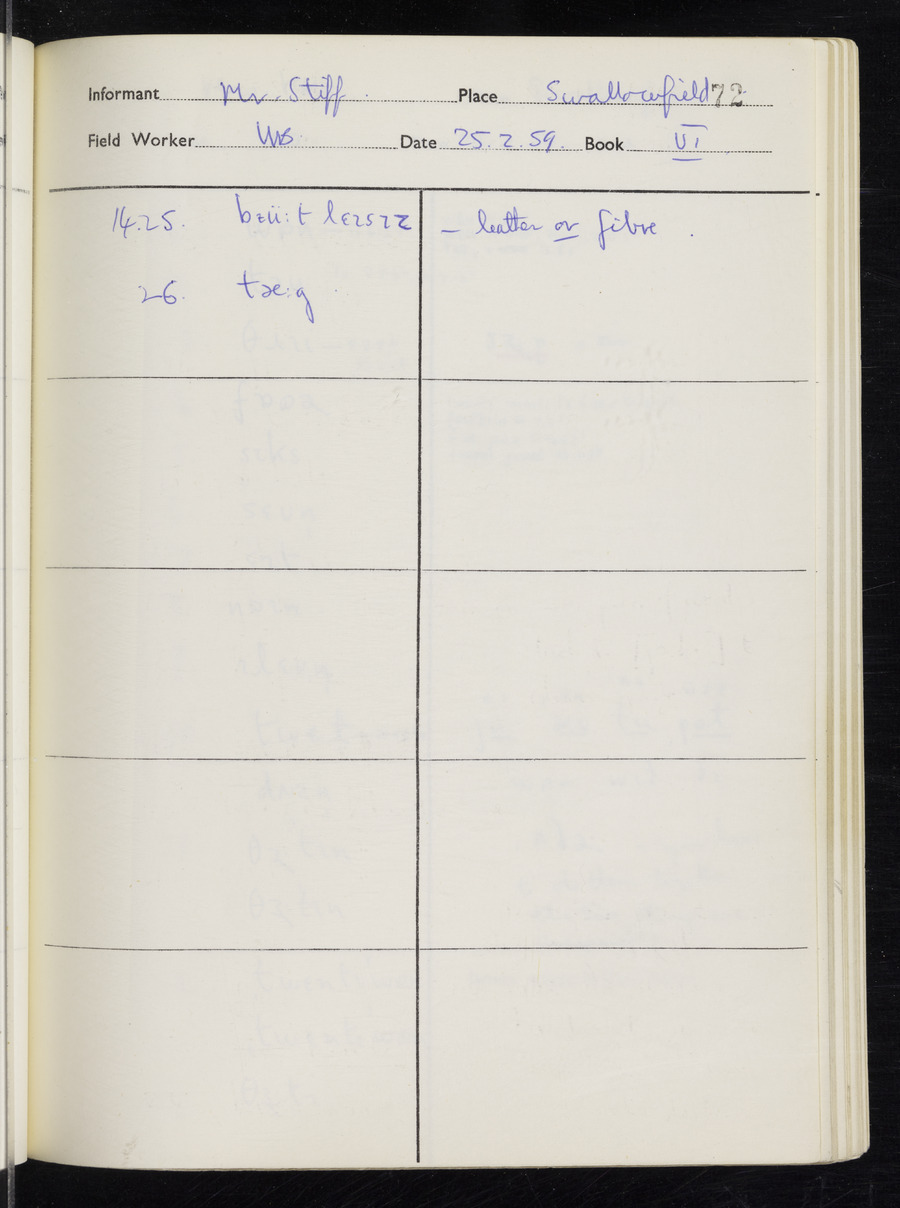 Informant Mr. Stiff Place Swallowfield 72
Field Worker Date 25.2.59. Book VI
14.25. – leather or fibre.
26. tæ:g